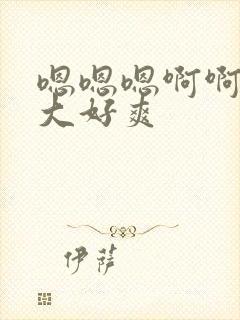 嗯嗯嗯啊啊
大好爽
伊萨